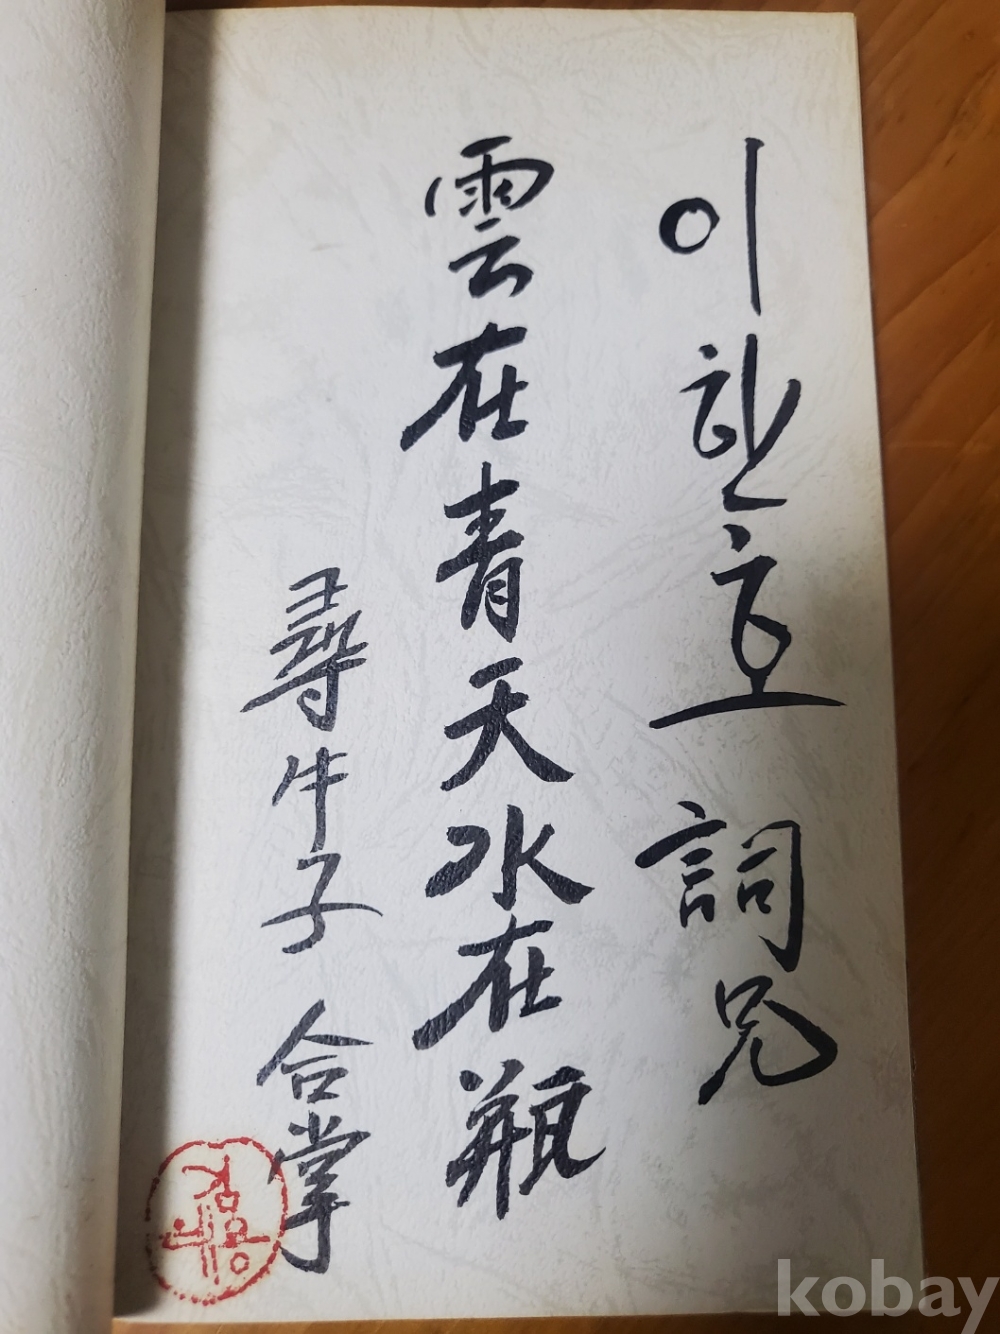 이한호 詞兄
雲在青天水在甁
尋牛子 合掌
kobay